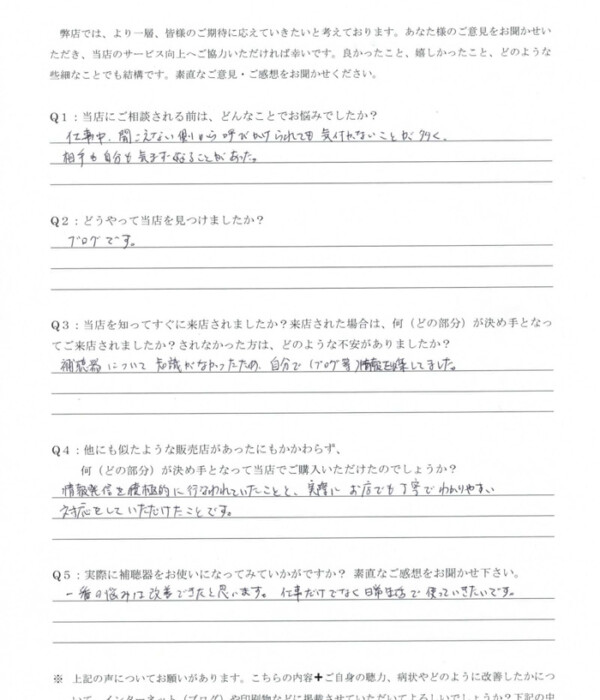 弊店では、より一層、皆様のご期待に応えていきたいと考えております。あなた様のご意見をお聞かせい
ただき、当店のサービス向上へご協力いただければ幸いです。良かったこと、嬉しかったこと、どのような
些細なことでも結構です。素直なご意見・ご感想をお聞かせください。
Q1：当店にご相談される前は、どんなことでお悩みでしたか？
仕事中、聞こえない側から呼びかけられても気付かないことが多く、
相手も自分も気まずくなることがあった。
Q2：どうやって当店を見つけましたか？
ブログです。
Q3：当店を知ってすぐに来店されましたか？来店された場合は、何（どの部分）が決め手となっ
てご来店されましたか？されなかった方は、どのような不安がありましたか？
補聴器について知識がなかったため、自分で（ブログ等）情報収集してました。
Q4：他にも似たような販売店があったにもかかわらず、
何（どの部分）が決め手となって当店でご購入いただけたのでしょうか？
情報発信を積極的に行なわれていたことと、実際にお店でも丁寧でわかりやすい
対応をしていただけたことです。
Q5：実際に補聴器をお使いになってみていかがですか？ 素直なご感想をお聞かせ下さい。
一番の悩みは改善できたと思います。仕事だけでなく日常生活で使っていきたいです。
※ 上記の声についてお願いがあります。こちらの内容＋ご自身の聴力、病状やどのように改善したかにつ
いて、インターネット（ブログ）や印刷物などに掲載させていただいてよろしいでしょうか？下記の中